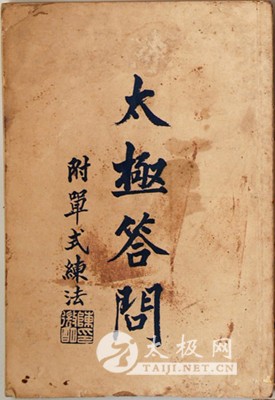 太極答問
附單式練法
太极网
TAIJI.NET.CN